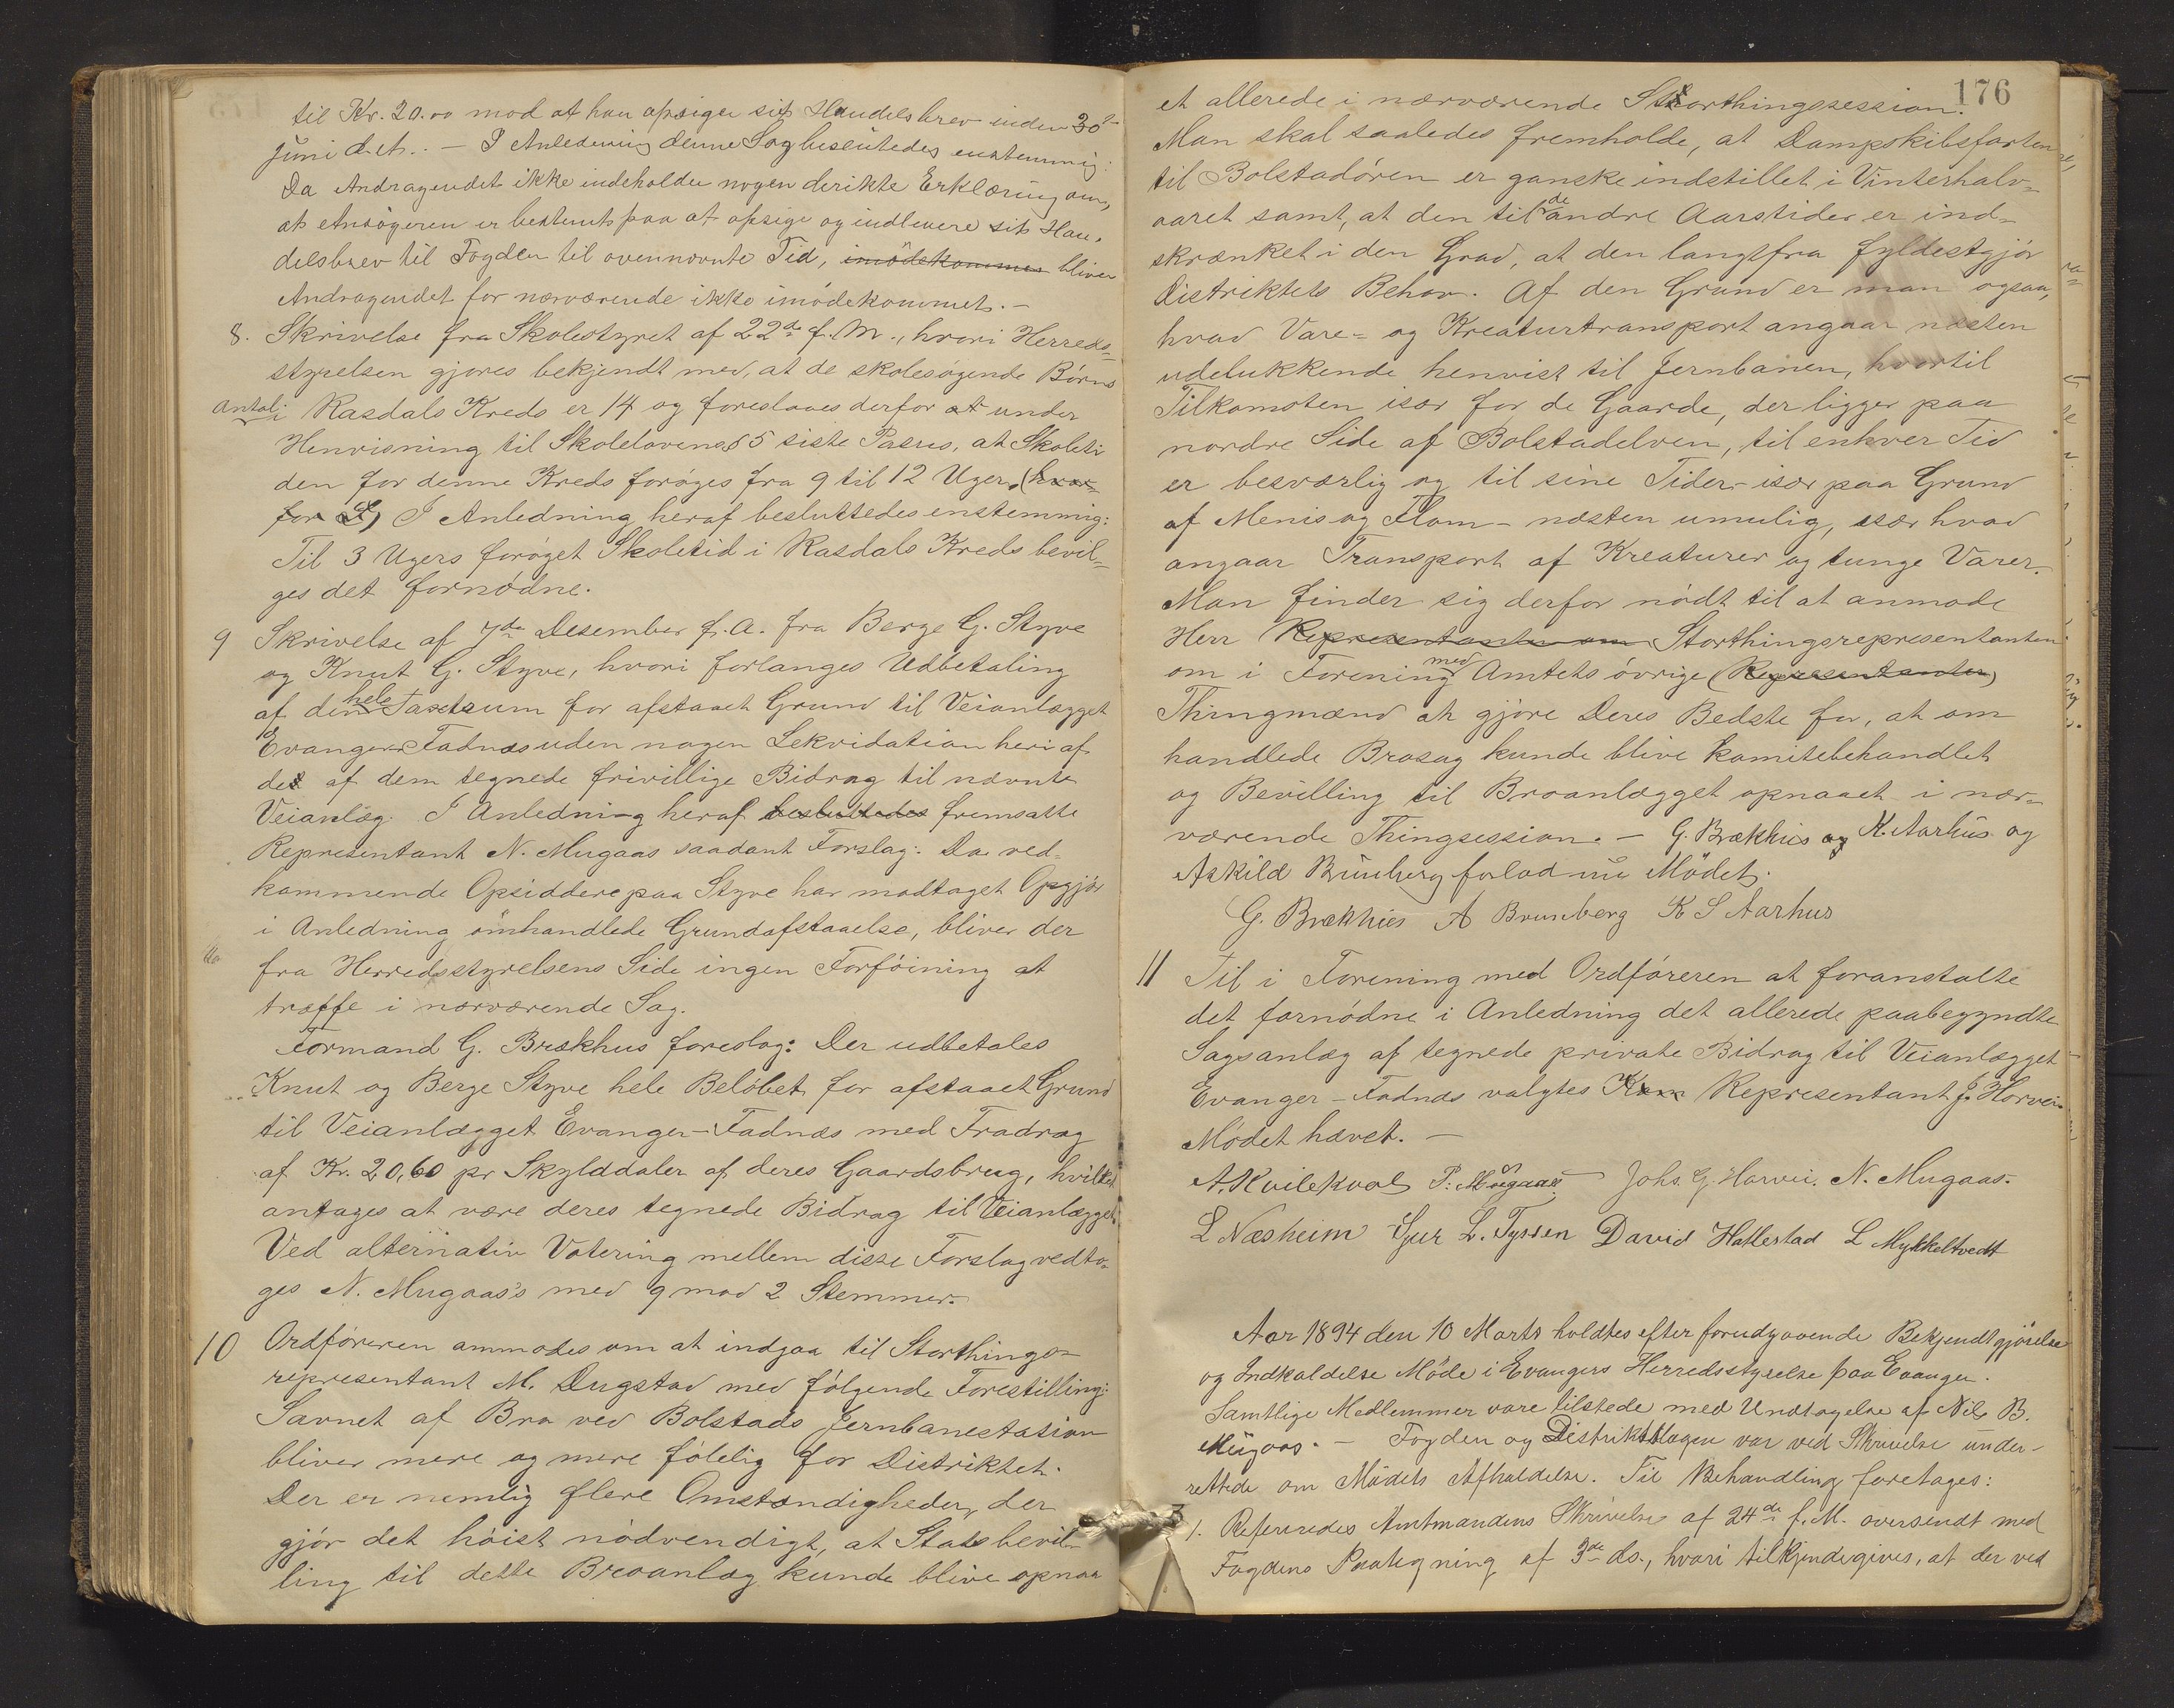 til Kr. 20.00 mod at han opsiger sit Handelsbrev inden 30te
Juni d. A. . — I Anledning denne Sag besluttedes enstemmig:
Da Andragendet ikke indeholder nogen dirikte Erklæring om,
at Ansøgeren er bestemt paa at opsige og indlevere sit Han-
delsbrev til Fogden til ovennævnte Tid, imødekommes bliver
Andragendet for nærværende ikke imødekommet. —
8. Skrivelse fra Skolestyret af 22de f. M., hvori Herreds-
styrelsen gjøres bekjendt med, at de skolesøgende Børns
Antal i Rasdals Kreds er 14 og foreslaaes derfor at under
Henvisning til Skolelovens § 5 siste Passus, at Skoleti
den for denne Kreds forøges fra 9 til 12 Uger. (hvor-
for L) I Anledning heraf besluttedes enstemmig:
Til 3 Ugers forøget Skoletid i Rasdals Kreds bevil-
ges det fornødne.
9 Skrivelse af 7de Desember f. A. fra Berge G. Styve
og Knut G. Styve, hvori forlanges Udbetaling
af den hele Taxtsum for afstaaet Grund til Veianlægget
Evanger-Fadnæs uden nogen Lekvidation heri af
det af dem tegnede frivillige Bidrag til nævnte
Veianlæg. I Anledning heraf besluttedes fremsatte
Representant N. Mugaas saadant Forslag: Da ved-
kommende Opsiddere paa Styve har modtaget Opgjør
i Anledning omhandlede Grundafstaaelse, bliver der
fra Herredsstyrelsens Side ingen Forføining at
træffe i nærværende Sag.
Formand G. Brækhus foreslog: Der udbetales
Knut og Berge Styve hele Beløbet for afstaaet Grund
til Veianlægget Evanger-Fadnæs med Fradrag
af Kr. 20,60 pr Skylddaler af deres Gaardsbrug, hvilket
antages at være deres tegnede Bidrag til Veianlægget.
Ved alternativ Votering mellem disse Forslag vedto-
ges N. Mugaas's med 9 mod 2 Stemmer.
10 Ordføreren anmodes om at indgaa til Storthings-
representant M. Dugstad med følgende Forestilling:
Savnet af Bro ved Bolstads Jernbanestation
bliver mere og mere følelig for Distriktet.
Der er nemlig flere Omstændigheder, der
gjør det høist nødvendigt, at Statsbevil-
ling til dette Broanlæg kunde blive opnaa
176
et allerede i nærværende Storthingssession.
Man skal saaledes fremholde, at Dampskibsfarten
til Bolstadøren er ganske indstillet i Vinterhalv-
aaret samt, at den til de andre Aarstider er ind-
skrænket i den Grad, at den langtfra fyldestgjør
Distriktets Behov. Af den Grund er man ogsaa,
hvad Vare- og Kreaturtransport angaar næsten
udelukkende henvist til Jernbanen, hvortil
Tilkomsten især for de Gaarde, der ligger paa
nordre Side af Bolstadelven, til enhver Tid
er besværlig og til sine Tider - især paa Grund
af Menis og Flom - næsten umulig, især hvad
angaar Transport af Kreaturer og tunge Varer.
Man finder sig derfor nødt til at anmode
Herr Representanten om Storthingsrepresentanten
om i Forening med Amtets øvrige (Representanter)
Thingmænd at gjøre Deres Bedste for, at om
handlede Brosag kunde blive komitebehandlet
og Bevilling til Broanlægget opnaaet i nær-
værende Thingsession. — G. Brækhus og K. Aarhus og
Askild Brunberg forlod nu Mødet.
G. Brækhus A Brunberg K S Aarhus
11 Til i Forening med Ordføreren at foranstalte
det fornødne i Anledning det allerede paabegyndte
Sagsanlæg af tegnede private Bidrag til Veianlægget
Evanger - Fadnæs valgtes Representant J. Horvei.
Mødet hævet. —
A. Kvilekval P. Mugaas Johs. G. Horvei. N. Mugaas.
L Næsheim Sjur L. Tyssen David Hatlestad L Mykkeltvedt
Aar 1894 den 10 Marts holdtes efter forudgaaende Bekjendtgjørelse
og Indkaldelse Møde i Evangers Herredsstyrelse paa Evanger.
Samtlige Medlemmer vare tilstede med Undtagelse af Nils B.
Mugaas. — Fogden og Distriktslægen var ved Skrivelse under-
rettede om Mødets Afholdelse. Til Behandling foretages:
1. Refereredes Amtmandens Skrivelse af 24de f. M. oversendt med
Fogdens Paategning af 3de ds., hvori tilkjendegives, at der ved